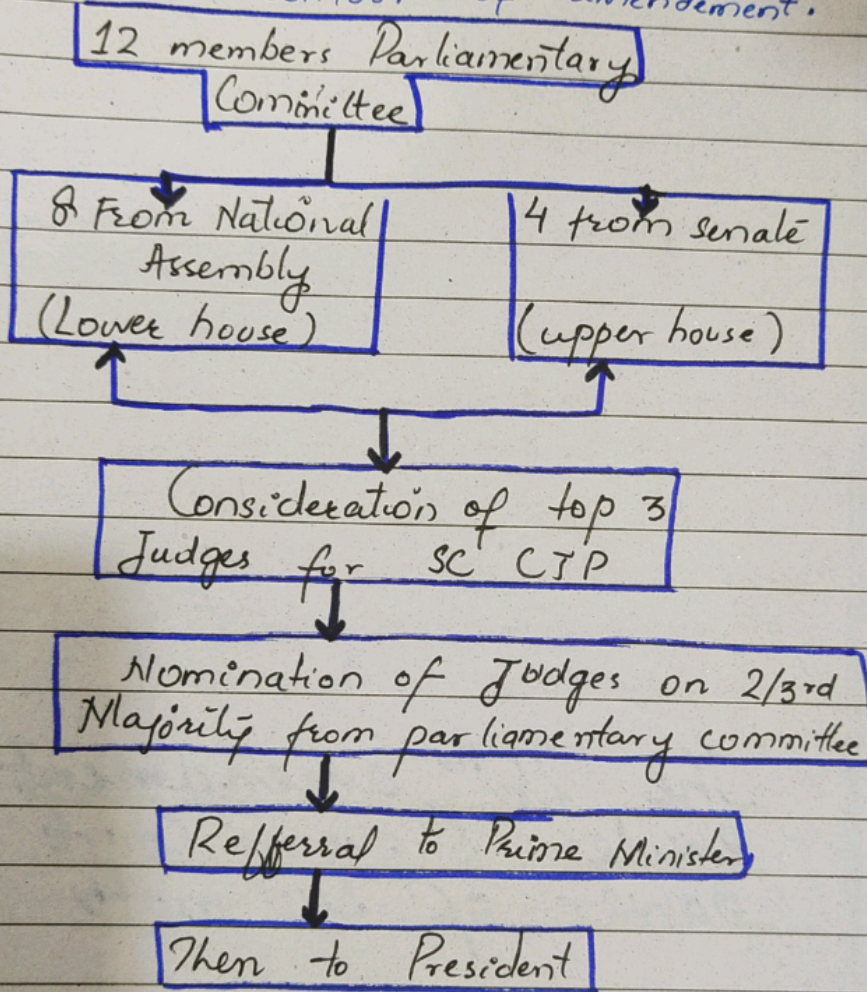 amendement.
12 members Parliamentary
Committee
8 From National
Assembly
(Lower house)
4 from senate
(upper house)
Consideration of top 3
Judges for SC CJP
Nomination of Judges on 2/3rd
Majority from parliamentary committee
Refferral to Prime Minister
Then to President